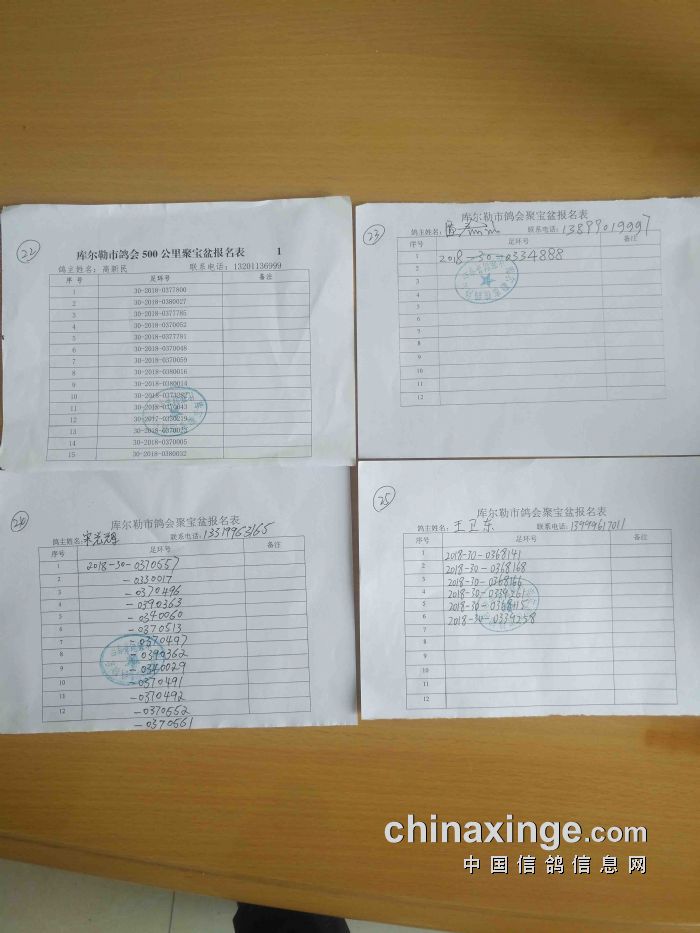 22
库尔勒市鸽会 500 公里聚宝盆报名表 1
鸽主姓名：高新民 联系电话：13201136999
序 号 足环号 备注
1 30-2018-0377800
2 30-2018-0380027
3 30-2018-0377785
4 30-2018-0370052
5 30-2018-0377781
6 30-2018-0370048
7 30-2018-0370059
8 30-2018-0380016
9 30-2018-0380014
10
11 30-2018-0370043
12 30-2017-0330219
13 30-2018-0370023
14 30-2018-0370005
15 30-2018-0380032
23
库尔勒市鸽会聚宝盆报名表
鸽主姓名： 联系电话：13899019997
序号 足环号 备注
1 2018-30-0334888
2
3
4
5
6
7
8
9
10
11
12
库尔勒市鸽会聚宝盆报名表
鸽主姓名：宋光辉 联系电话：13319953165
序号 足环号 备注
1 2018-30-0370557
2 -0330017
3 -0370496
4 -0390363
5 -0340060
6 -0370513
7 -0370497
8 -0390362
9 -0340029
10 -0370491
11 -0370492
12 -0370552
-0370561
25
库尔勒市鸽会聚宝盆报名表
鸽主姓名：王卫东 联系电话：13999617011
序号 足环号 备注
1 2018-30-0368141
2 2018-30-0368168
3 2018-30-0368166
4 2018-30-0339261
5 2018-30-0368115
6 2018-30-0339258
7
8
9
10
11
12
chinaxinge.com
中国信鸽信息网